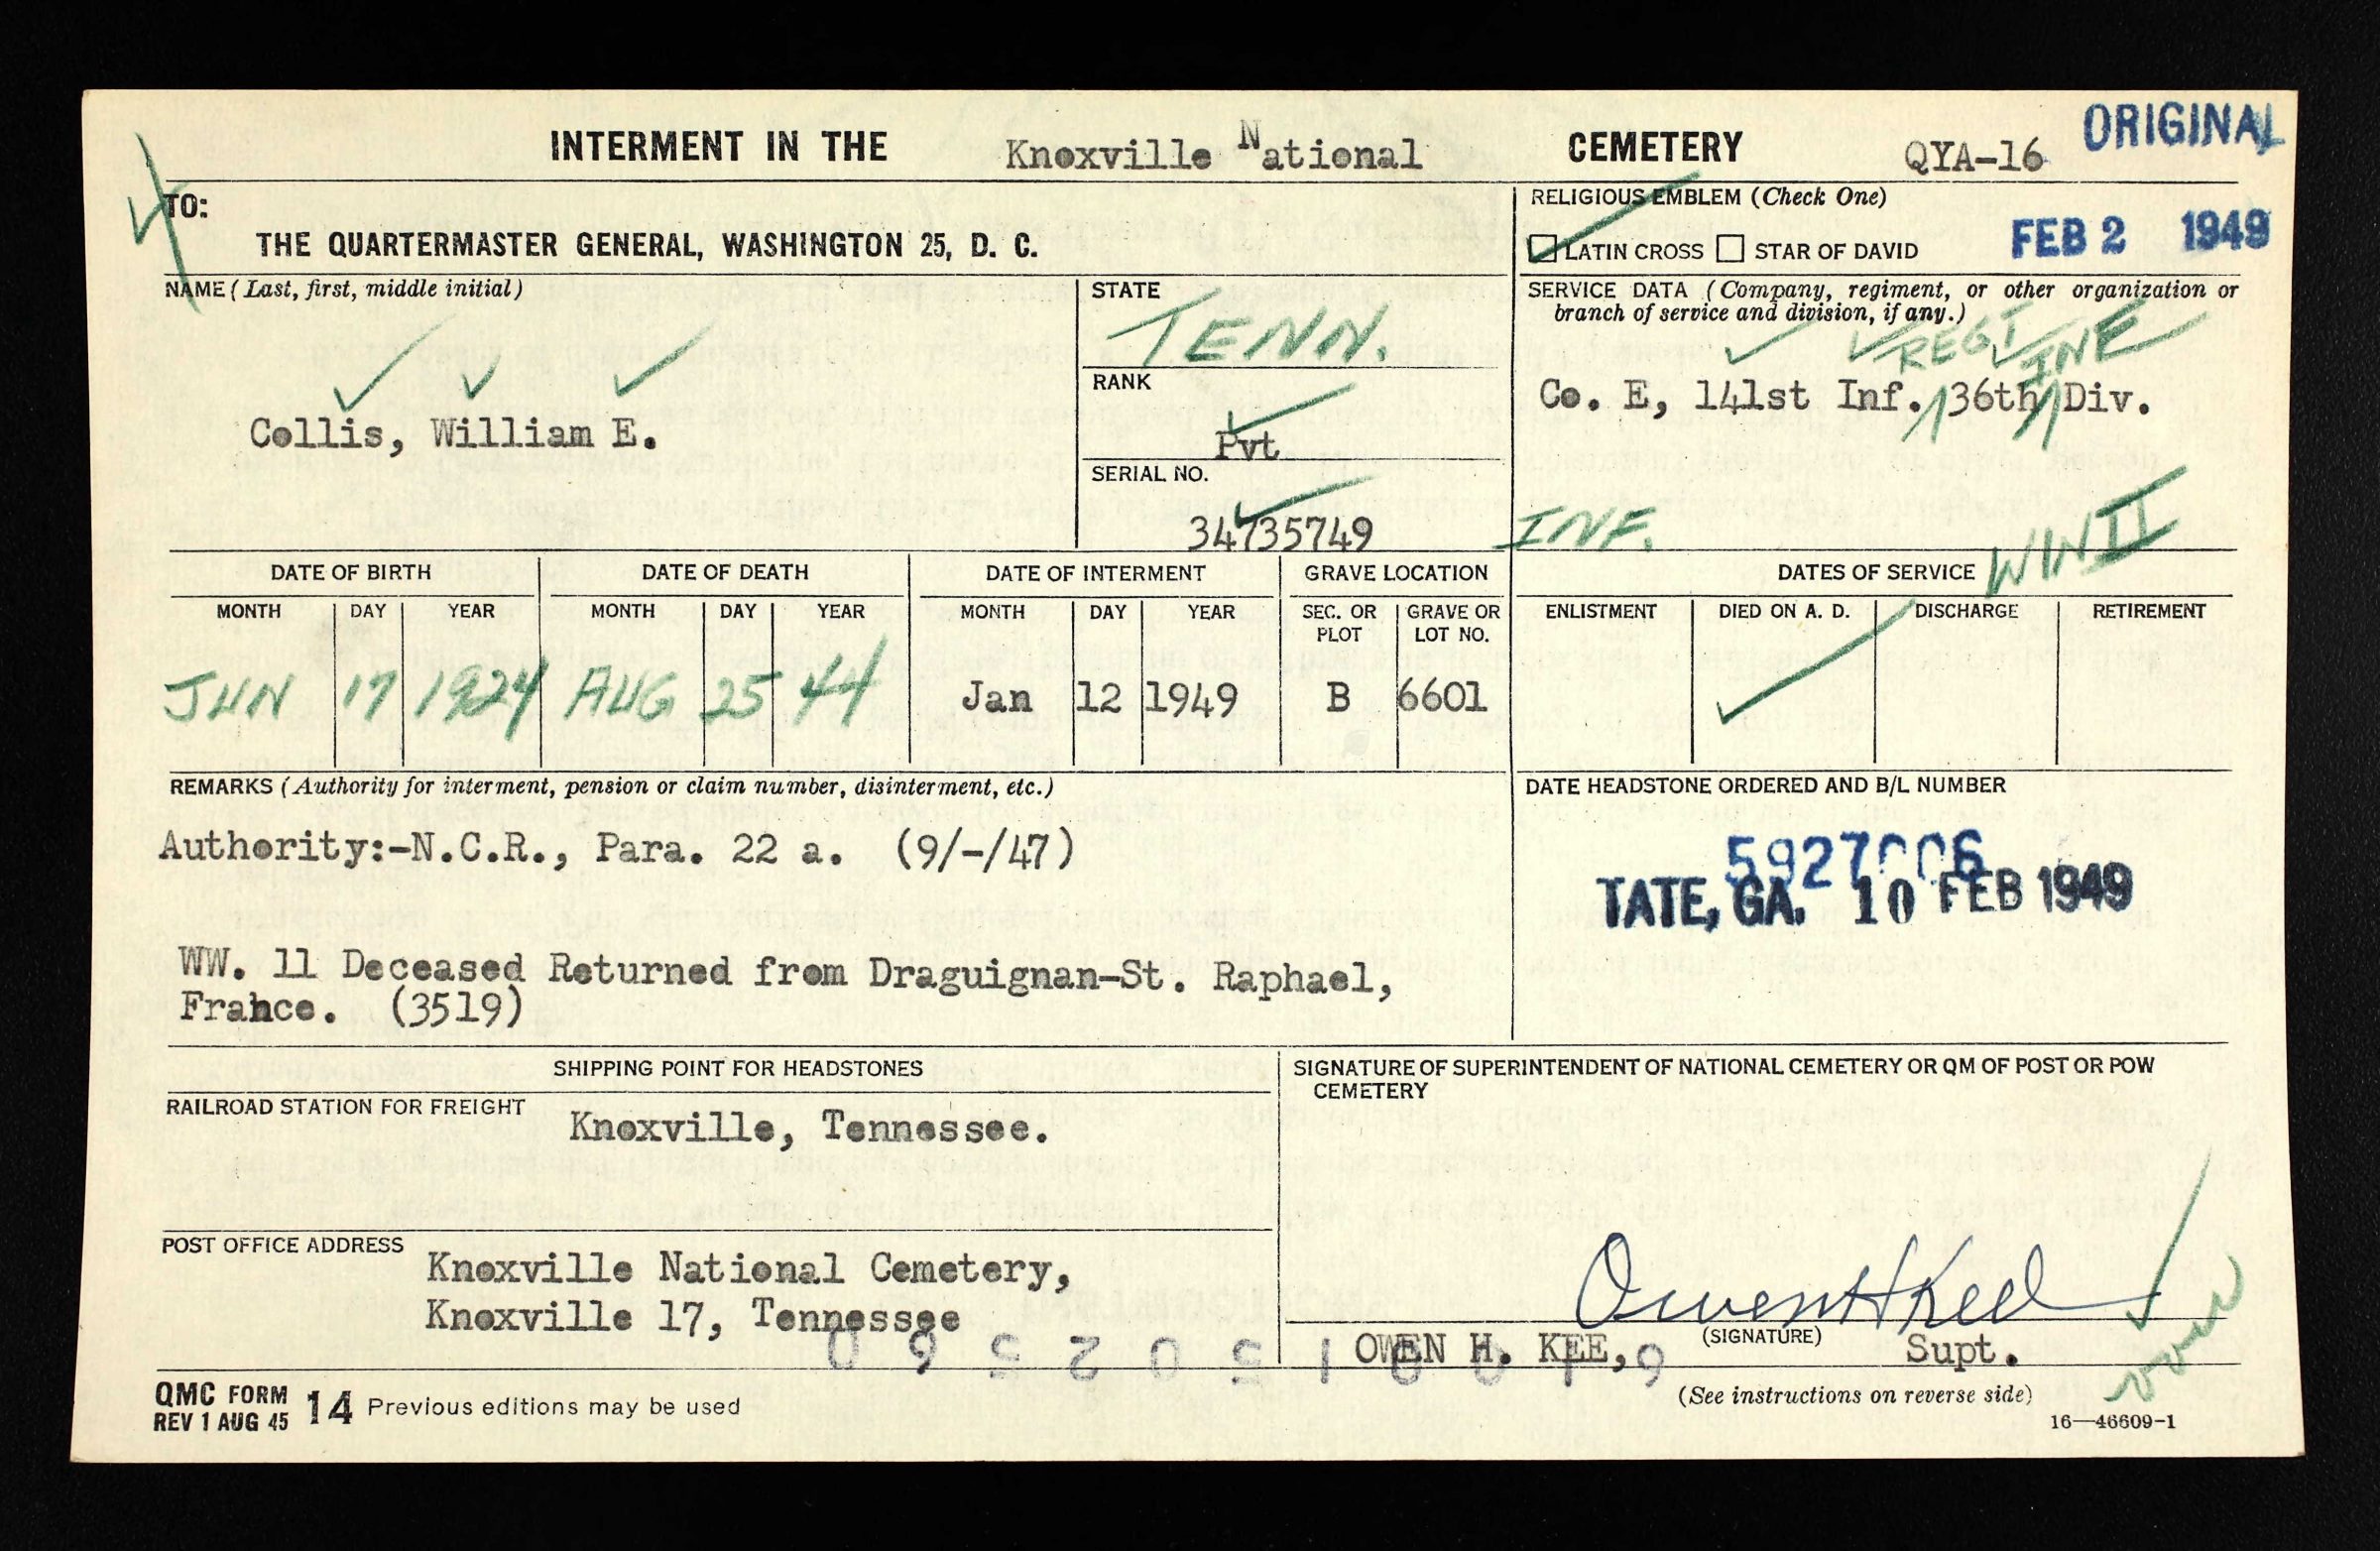 INTERMENT IN THE Knoxville National CEMETERY QYA-16 ORIGINAL
TO:
THE QUARTERMASTER GENERAL, WASHINGTON 25, D. C.
RELIGIOUS EMBLEM (Check One)
LATIN CROSS STAR OF DAVID
FEB 2 1949
NAME (Last, first, middle initial)
Collis, William E.
STATE
TENN.
RANK
Pvt
SERIAL NO.
34735749
SERVICE DATA (Company, regiment, or other organization or
branch of service and division, if any.)
REGT INF
Co. E, 141st Inf. 36th Div.
INF.
WWII
DATE OF BIRTH DATE OF DEATH DATE OF INTERMENT GRAVE LOCATION DATES OF SERVICE
MONTH DAY YEAR MONTH DAY YEAR MONTH DAY YEAR SEC. OR PLOT GRAVE OR LOT NO. ENLISTMENT DIED ON A. D. DISCHARGE RETIREMENT
JUN 17 1924 AUG 25 44 Jan 12 1949 B 6601
REMARKS (Authority for interment, pension or claim number, disinterment, etc.)
Authority:-N.C.R., Para. 22 a. (9/-/47)
WW. 11 Deceased Returned from Draguignan-St. Raphael,
France. (3519)
DATE HEADSTONE ORDERED AND B/L NUMBER
TATE, GA. 10 FEB 1949
SHIPPING POINT FOR HEADSTONES
RAILROAD STATION FOR FREIGHT
Knoxville, Tennessee.
POST OFFICE ADDRESS
Knoxville National Cemetery,
Knoxville 17, Tennessee
SIGNATURE OF SUPERINTENDENT OF NATIONAL CEMETERY OR QM OF POST OR POW
CEMETERY
Owen H Kee
OWEN H. KEE, (SIGNATURE) Supt.
QMC FORM 14 Previous editions may be used
REV 1 AUG 45
(See instructions on reverse side)
16—46609-1